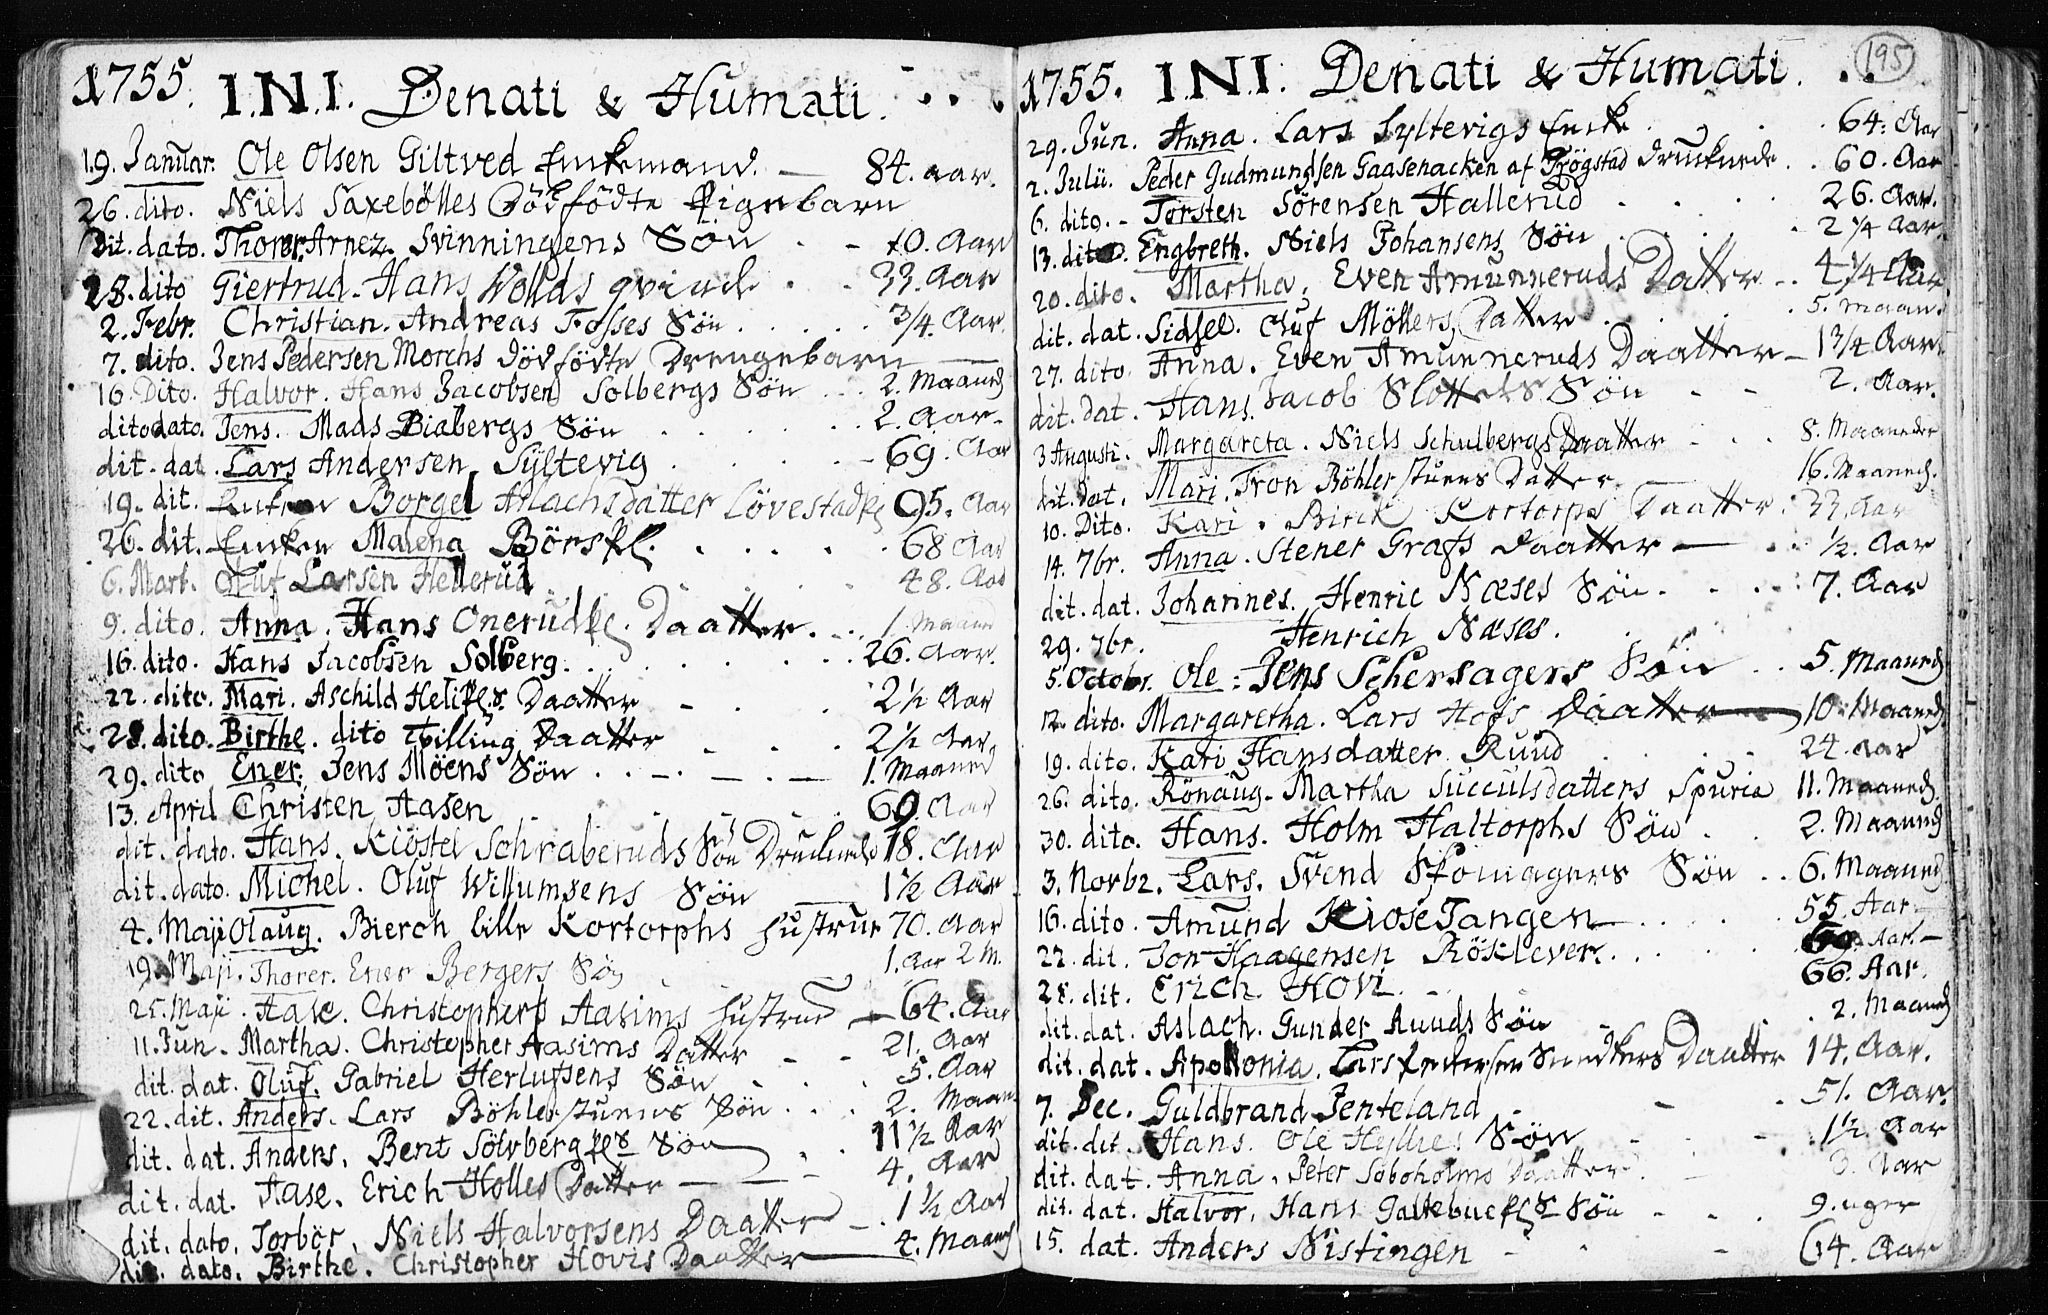 1755. I.N.I. Denati & Humati
19. Januar. Ole Olsen Giltved Enkemand. — 84. aar.
26. dito. Niels Saxebölles Dödfödte Pigebarn
Dit. dato. Thorer Arnez. Svinningens Sön . - 10. Aar
28. dito Giertrud. Hans Wolds qvinde . . 33. Aar
2. Febr. Christian. Andreas Fosses Sön . . . . . 3/4. Aar.
7. dito. Jens Pedersen Morchs dödfödte Drengebarn
16. Dito. Halvor. Hans Jacobsen Solbergs Sön . . . 2. Maaned
dito dato. Jens. Mads Biabergs Sön . . . . . 2. Aar.
dit. dat. Lars Andersen Syltevig . . . . 69. Aar
19. dit. Enken Borgel Aslachsdatter Lövestad 95. Aar
26. dit. Enken Malena Börs . . . . . 68 Aar
6. Mart. Oluf Larsen Hellerud . . . 48. Aar
9. dito. Anna. Hans Onerud Daatter. . . 1 Maaned
16. dito. Hans Jacobsen Solberg. . . . . . . 26. Aar.
22. dito. Mari. Aschild Daatter - . . 2 1/2 Aar
28. dito. Birthe. dito Tvilling Daatter . . . 2 1/2 Aar
29. dito Ener. Jens Möens Sön . . — . — . — 1. Maaned
13. April Christen Aasen . . . . 60. Aar
dit. dato. Hans. Kiöstel Schraberuds Sön Druknede 18. Aar
dit. dato. Michel. Oluf Willumsens Sön 1 1/2 Aar
4. Maji Olaug. Bierch lille Kortorphs Hustrue 70. Aar
19. Maji. Thorer. Ener Bergers Sön 1. Aar 2 M.
25. Maji. Aase. Christophers Aasims Hustrue — 64. Aar
11. Jun. Martha. Christopher Aasims Datter - - 21. Aar
dit. dat. Oluf. Gabriel Herlufsens Sön . . . . 5. Aar
22. dit. Anders. Lars Böhlerstuens Sön . . . 2. Maan
dit. dat. Anders. Bent Sölvberg Sön . . 11 1/2 Aar
dit. dat. Aase. Erich Holles Datter — — 4. Aar
dit. dato. Torbör. Niels Halvorsens Daatter - . 1 1/2 Aar
dit. dato. Birthe. Christopher Hovis Daatter — 4. Maaned
195
1755. I.N.I. Denati & Humati . . .
29. Jun. Anna. Lars Syltevigs Enke . . . 64. Aar
2. Julii. Peder Gudmundssen Gaasenacken af Trögstad Druknede . . 60. Aar
6. dito. - Torsten Sörensen Hallerud . . . . 26. Aar.
13. dito. Engbreth. Niels Johansens Sön . . . . 2 1/4 Aar.
20. dito. Martha. Even Amunneruds Datter . . 4 1/4 Aar
dit. dat. Sidsel. Oluf Möllers Datter . . . . 5. Maan.
27. dito Anna. Even Amunneruds Daatter — 1 3/4 Aar.
dit. dat. Hans. Jacob Slottets Sön - - 2. Aar.
3 Augusti. Margareta. Niels Schulbergs Daatter . . . 8. Maaneder
dit. dat. Mari. Tron Böhlerstuens Datter 16. Maaned.
10. Dito. Kari. Birch Kortorps Daatter. 33. Aar
14. 7br. Anna. Stener Grafs Daatter — . . 1/2. Aar
dit. dat. Johannes. Henric Næses Sön . . . . 7. Aar
29. 7br. Henrich Næses.
5. Octobr. Ole. Jens Schersagers Sön . . 5. Maaned
12. dito. Margaretha. Lars Hofs Daatter — 10. Maaned
19. dito. Kari Hansdatter Ruud . . . 24. aar
26. dito. Rönaug. Martha Succulsdatters Spuria 11. Maaned
30. dito. Hans. Holm Haltorphs Sön . . 2. Maaned
3. Norbr. Lars. Svend Skomagers Sön . . 6. Maaned
16. dito. Amund KioseTangen . . . . 55. Aar
22. dit. Jon Haagensen Rösklever. . . . . 69. Aar. —
28. dit. Erich Hovi . - 66. Aar.
dit. dat. Aslach. Gunder Ruuds Sön . . 2. Maaned
dit. dat. Apollonia. Lars Andersen Daatter 14. Aar.
7. Dec. Guldbrand Jenteland . - . 51. Aar.
dit. dit. Hans. Ole Hyllies Sön - - - 1 1/2. Aar
dit. dat. Anna. Peter Soboholms Daatter . . - 3. Aar
dit. dat. Halvor. Hans Sön - . . 9. uger
15. dat. Anders Nistingen - - - 64. Aar